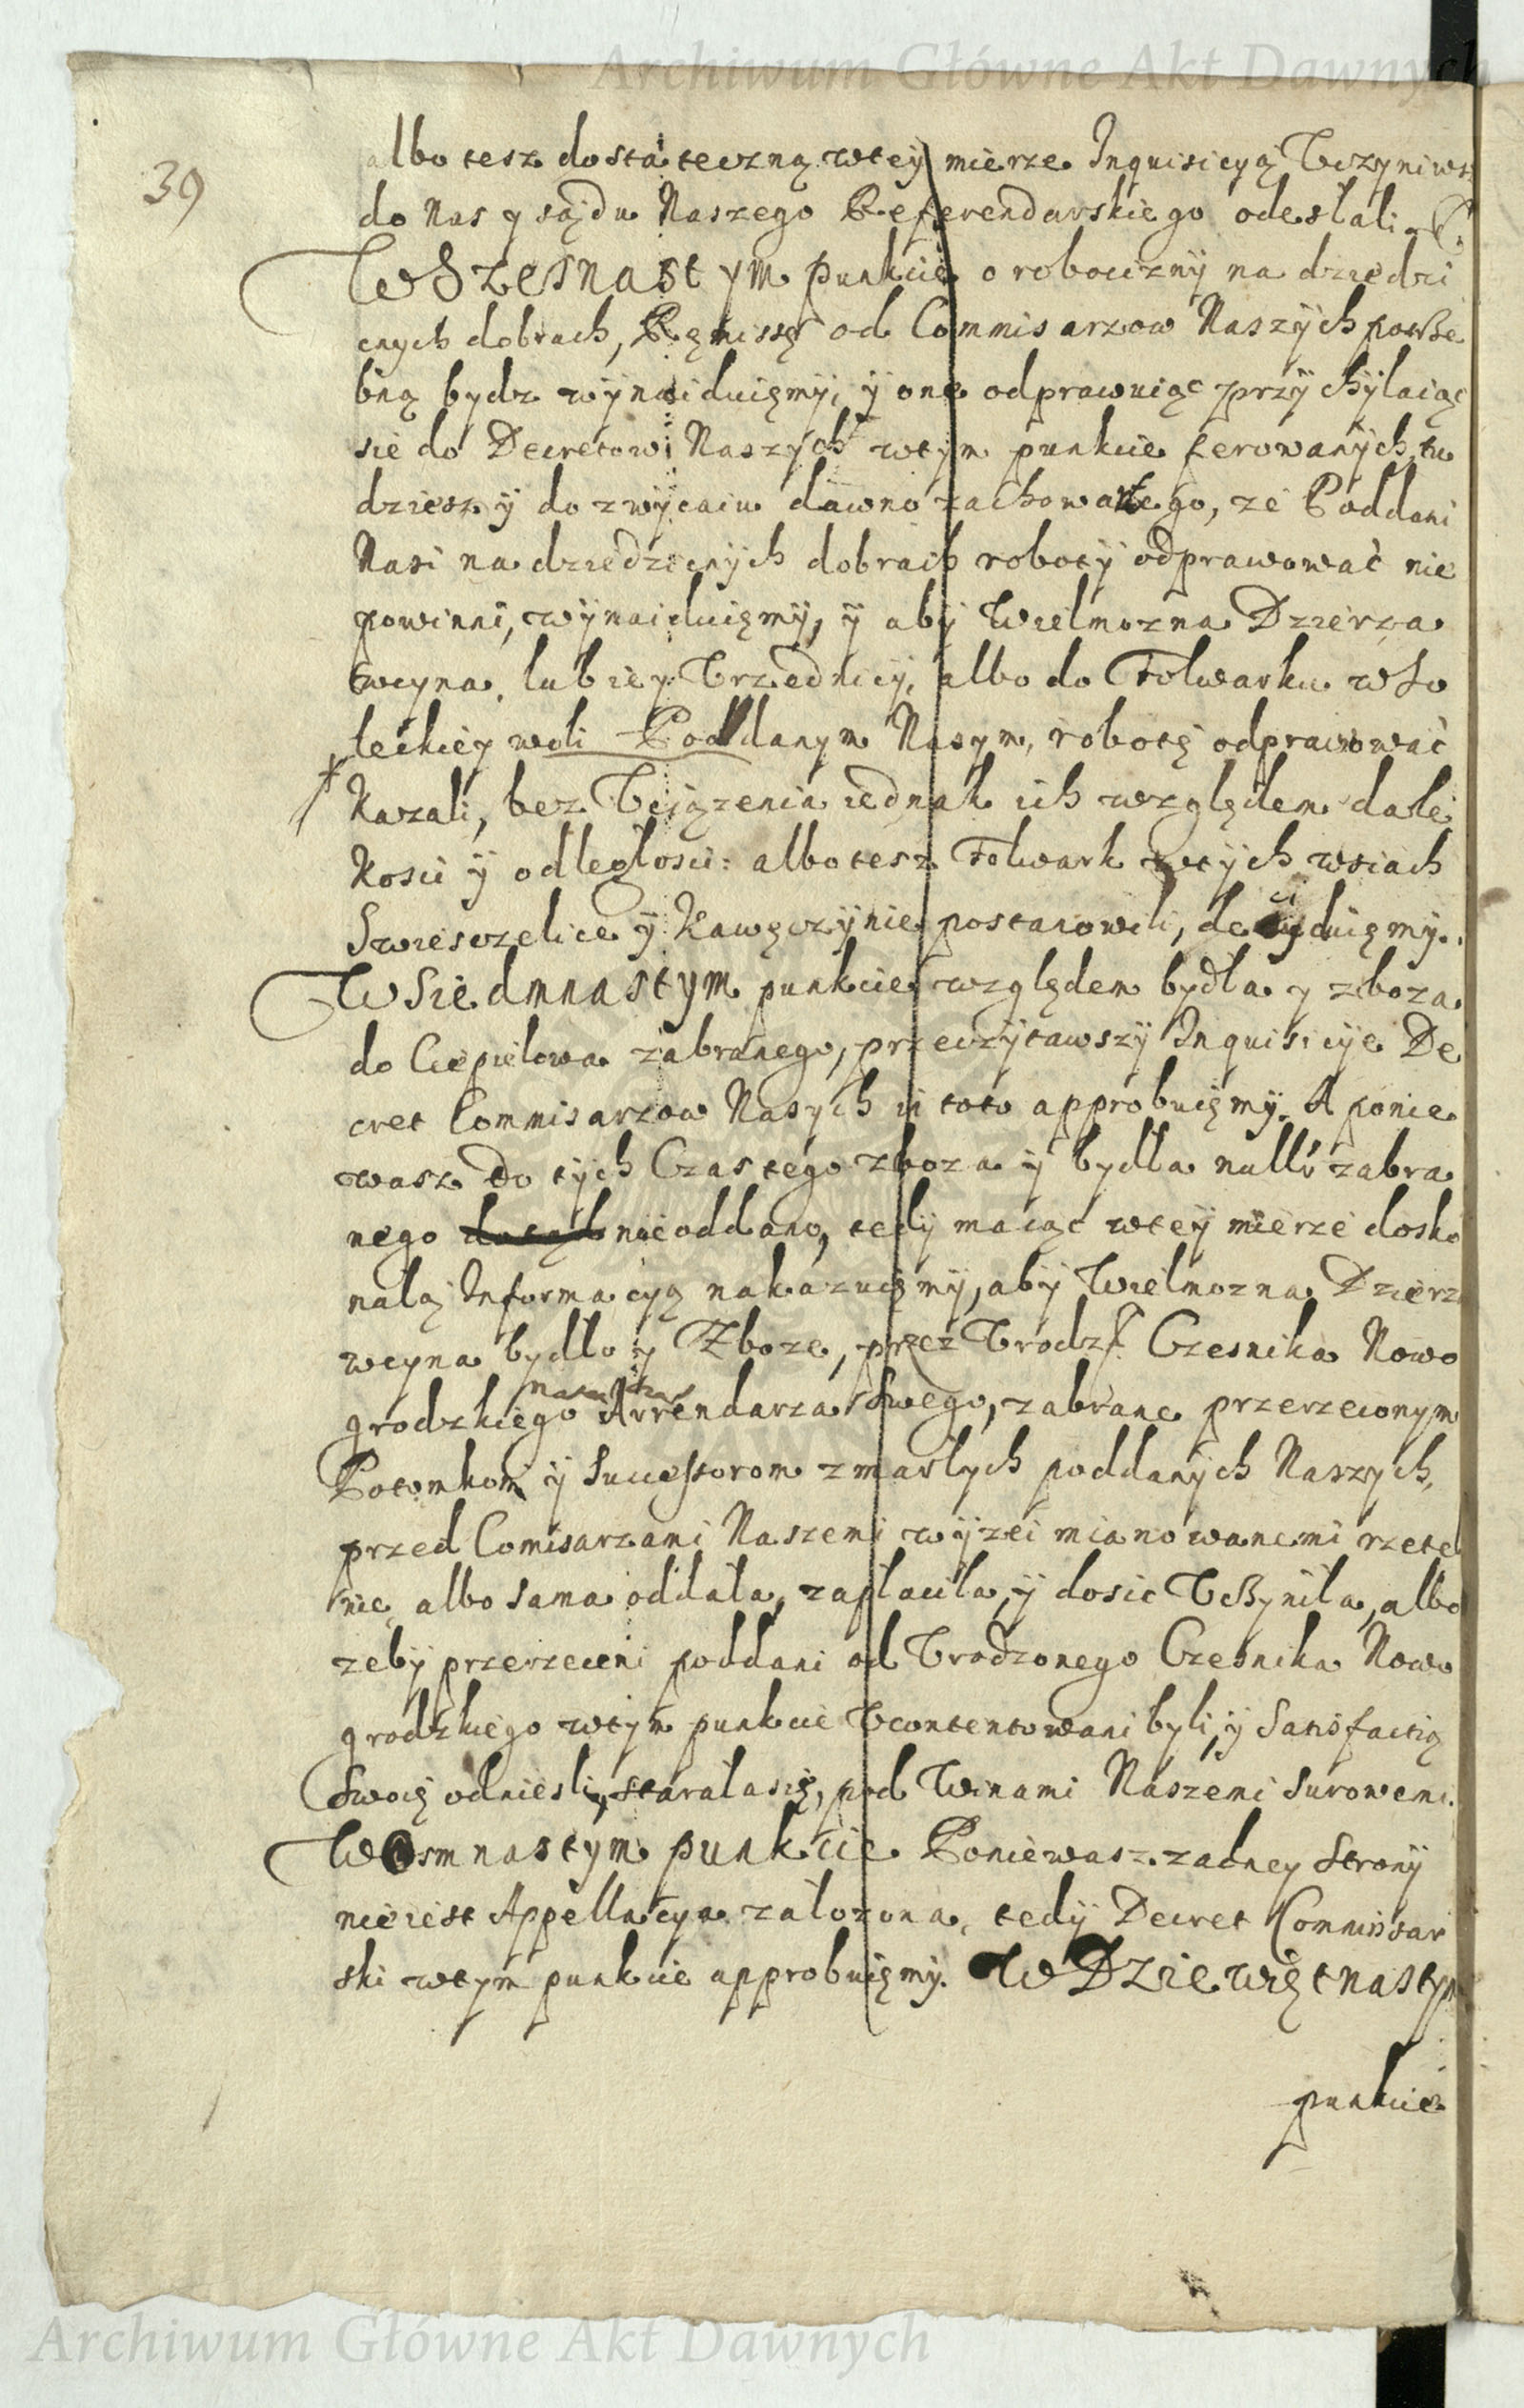 Archiwum Główne Akt Dawnych
39
albo tesz dostateczną wtey mierze Inquisicyą Vczyniwsz
do Nas y sądu Naszego Referendarskiego odeslali.
W Szesnastym punkcie o robocizny na dziedzi
cnych dobrach, Remissę od Commisarzow Naszych potrze
bną bydz wynaiduięmy, y one odprawuiąc przychylaiąc
sie do Decretow Naszych wtym punkcie ferowanych, tu
dziesz y do zwyczaiu dawno zachowałego, ze Poddani
Nasi na dziedzicnych dobrach roboty odprawować nie
powinni, wynaiduięmy, y aby Wielmozna Dzierza
wcyna, lub iey Vrzednicy, albo do Folwarku w So
leckiey woli Poddanym Nasym, robotę odprawować
Kazali, bez Vciązenia iednak ich względem dale
Kosci y odleglosci: albo tesz Folwark wtych wsiach
Swiesczelice y Kawęczynie postanowili, decyduięmy.
W Siedmnastym punkcie względem bydła y zboza
do Ciepielowa zabranego, przeczytawszy Inquisicye De
cret Commisarzow Nasych in toto approbuięmy. A ponie
wasz do tych Czas tego zboza y bydła zabra
nego nieoddano, tedy maiąc wtey mierze dosko
nałą Informacyą nakazuięmy, aby Wielmozna Dzierz
wcyna bydło y Zboze, przez Vrodz. Czesnika Nowo
grodzkiego Arrendarza Swego, zabrane przerzeconym
Potomkom y Successorom zmarłych poddanych Naszych,
przed Comisarzami Naszemi wyzei mianowanemi rzetel
nie albo sama oddała, zapłaciła, y dosic Vczyniła, albo
zeby przerzeceni poddani od Vrodzonego Czesnika Nowo
grodzkiego wtym punkcie Vcontentowani byli, y Satisfactią
Swoię odniesli, starała się, pod Winami Naszemi Surowemi.
W Osmnastym punkcie Poniewasz zadney Strony
nie iest Appellacya załozona, tedy Decret Commissar
ski wtym punkcie approbuięmy. W Dziewiętnastym
punkcie
Archiwum Główne Akt Dawnych